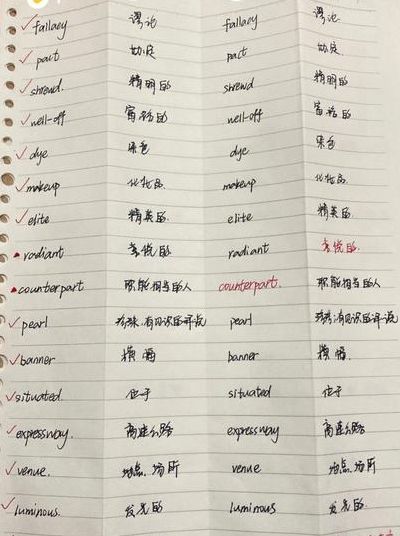 fallacy 谬论 fallacy 谬论
pact 协定 pact 协定
shrewd 精明的 shrewd 精明的
well-off 富裕的 well-off 富裕的
dye 染色 dye 染色
makeup 化妆品 makeup 化妆品
elite 精英的 elite 精英的
radiant 喜悦的 radiant 喜悦的
counterpart 职能相当的人 counterpart. 职能相当的人
pearl 珍珠,有见识的评说 pearl 珍珠,有见识的评说
banner 横幅 banner 横幅
situated. 位于 situated 位于
expressway. 高速公路 expressway 高速公路
venue. 地点.场所 venue 地点.场所
luminous. 发光的 luminous 发光的.